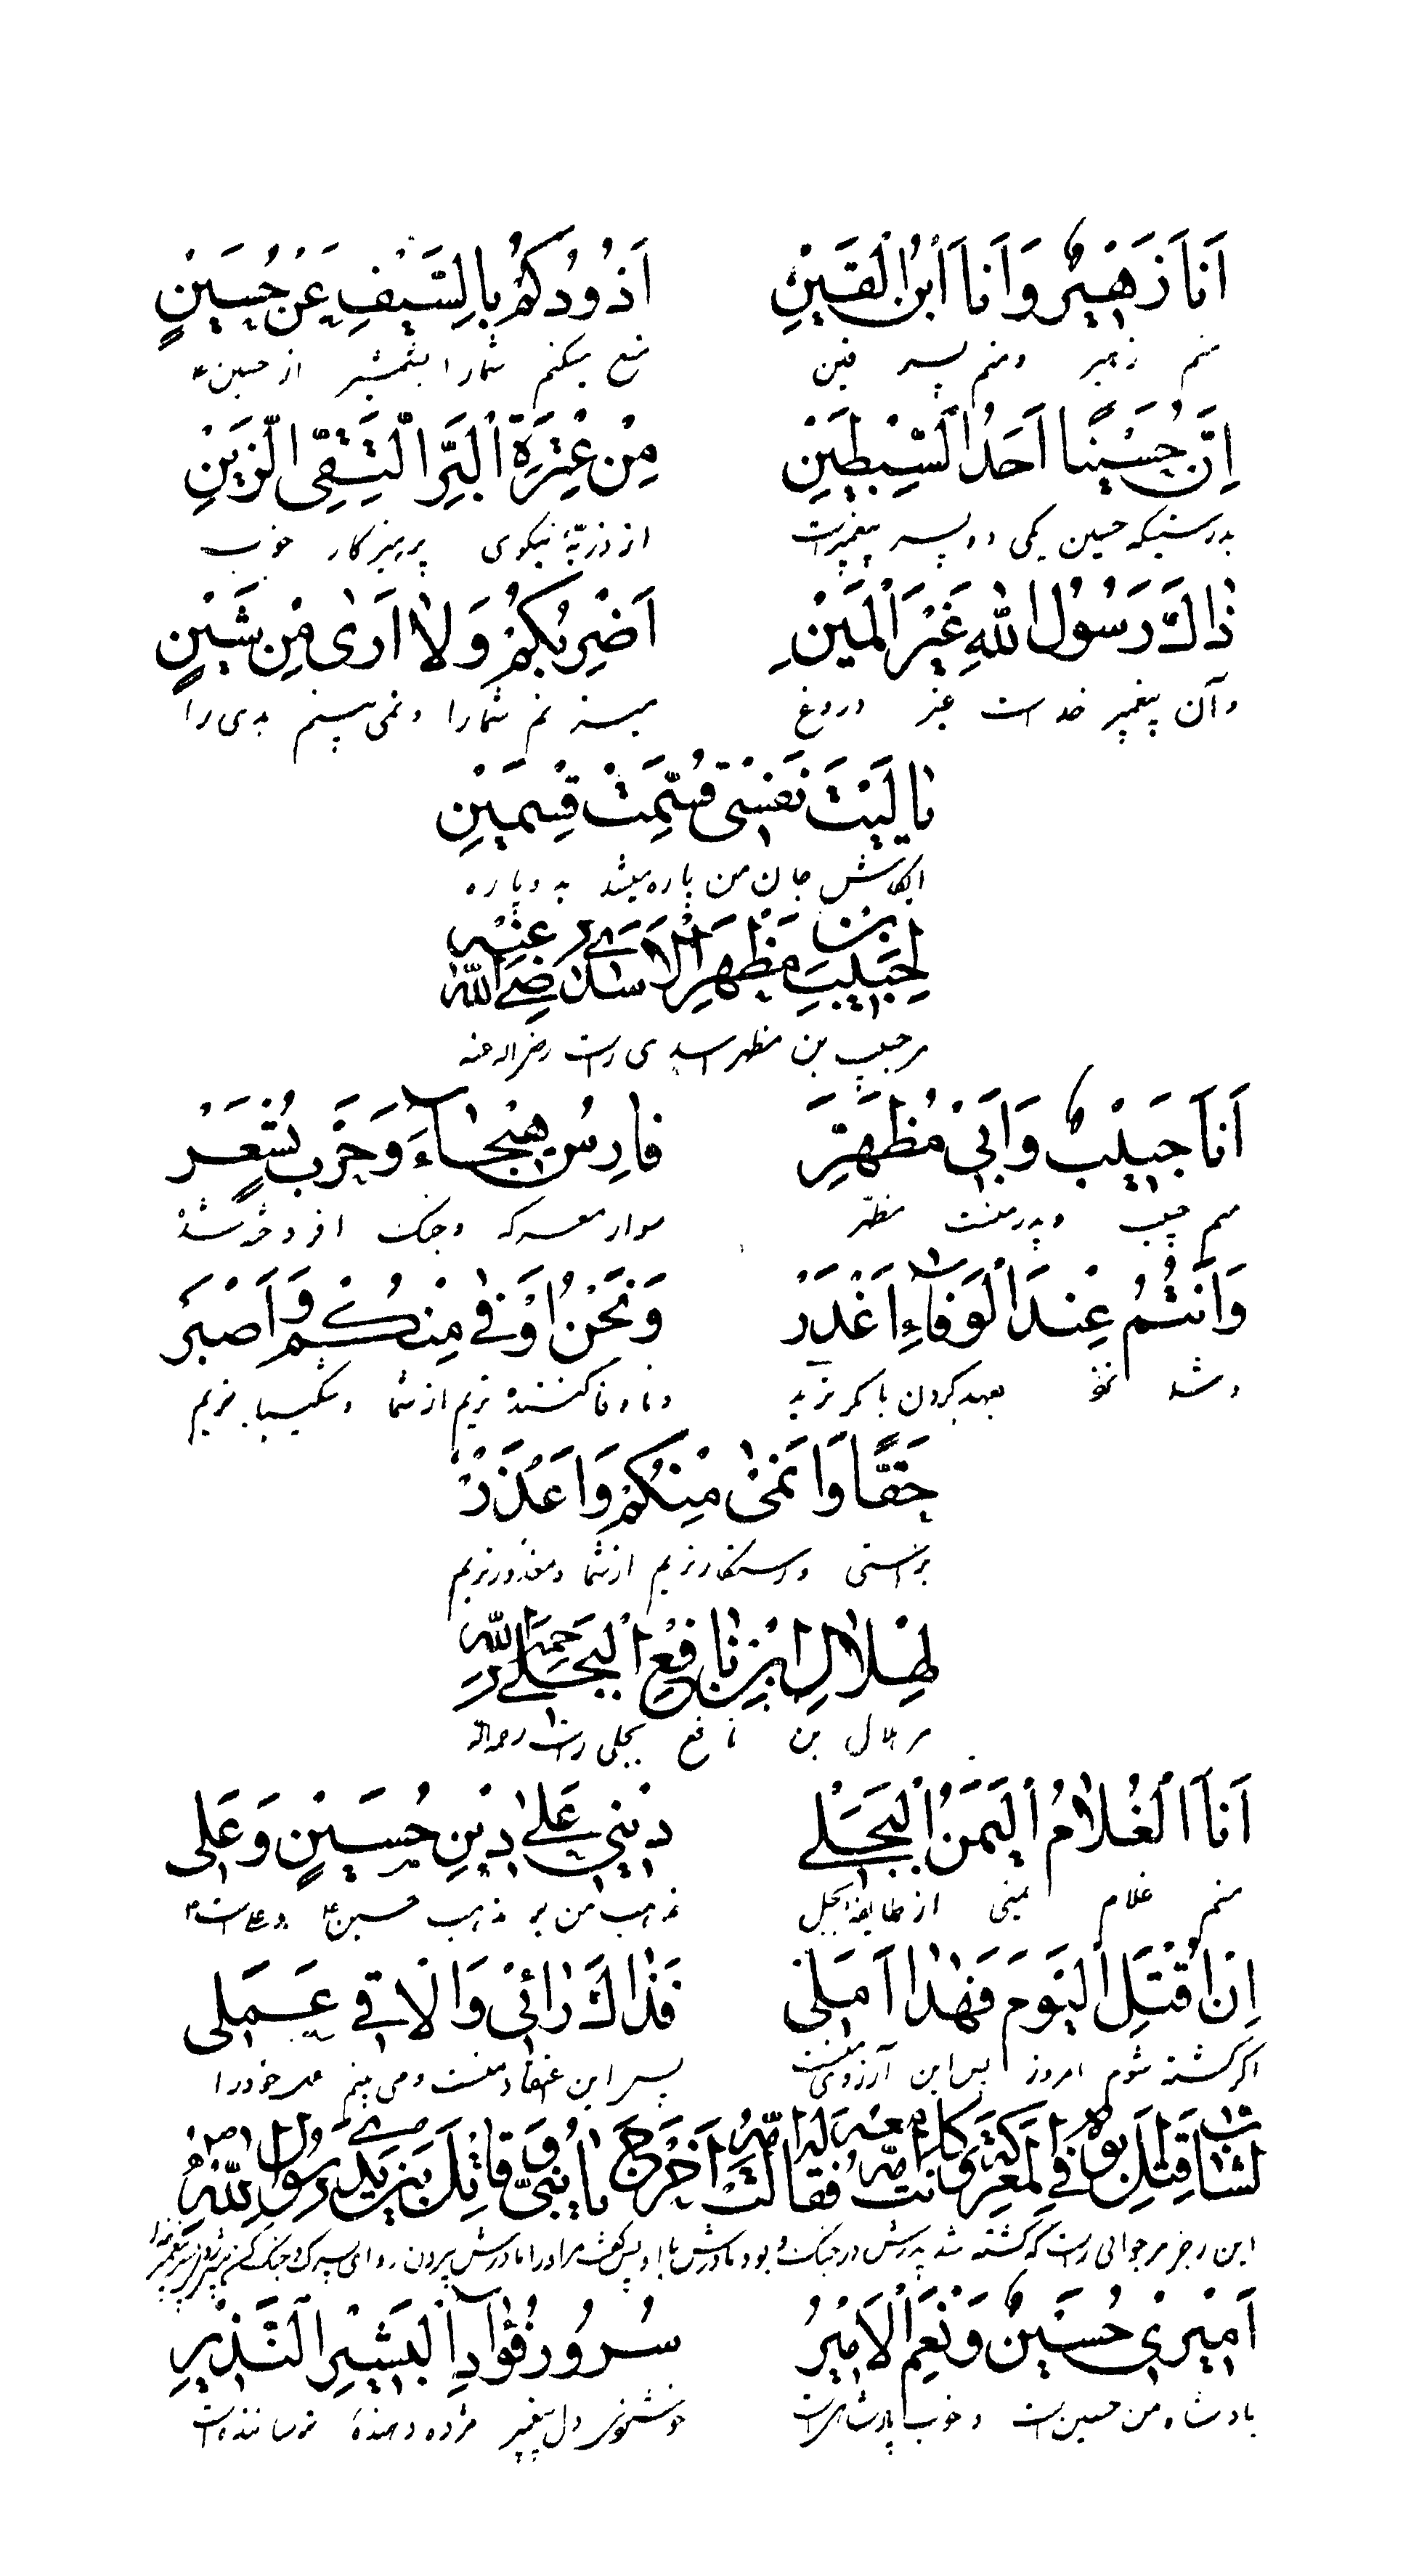 اَنَا زُهَیْرٌ وَاَنَا ابْنُ الْقَیْنِ اَذُودُکُمْ بِالسَّیْفِ عَنْ حُسَیْنٍ
منم زهیر ومنم پسر قین منع میکنم شمارا بشمشیر از حسین ع
اِنَّ حُسَیْنًا اَحَدُ السِّبْطَیْنِ مِنْ عِتْرَةِ الْبَرِّ التَّقِیِّ الزَّیْنِ
بدرستیکه حسین یکی دو پسر پیغمبرست از ذریّۀ نیکوی پرهیزکار خوب
ذَاكَ رَسُولُ اللهِ غَیْرُ الْمَیْنِ اَضْرِبُکُمْ وَلَا اَرٰی مِنْ شَیْنٍ
وآن پیغمبر خداست غیر دروغ میزنم شمارا ونمی بینم بدی را
یَا لَیْتَ نَفْسِی قُسِّمَتْ قِسْمَیْنِ
ایکاش جان من پاره میشد به دوپاره
لِحَبِیبِ بْنِ مُظَهَّرِ الْاَسَدِیِّ رَضِیَ اللهُ عَنْهُ
مر حبیب بن مظهر اسدی راست رضی اله عنه
اَنَا حَبِیبٌ وَاَبِیْ مُظَهَّرُ فَارِسُ هَیْجَاءَ وَحَرْبٍ تُسْعَرُ
منم حبیب وپدر منست مظهّر سوار معرکه وجنک افروخته شده
وَاَنْتُمُ عِنْدَ الْوَفَاءِ اَغْدَرُ وَنَحْنُ اَوْفٰی مِنْکُمْ وَاَصْبَرُ
وشما نزد بعهد کردن با مکر ترید وما وفا کننده تریم از شما وشکیبا تریم
حَقًّا وَاَنْمٰی مِنْکُمْ وَاَعْذَرُ
براستی ورستکارتریم از شما ومعذورتریم
لِهِلَالِ ابْنِ نَافِعِ الْبَجَلِیِّ رَحِمَهُ اللهُ
مر هلال بن نافع بجلی راست رحمه الله
اَنَا الْغُلَامُ الْیَمَنُ الْبَجَلِی دِیْنِی عَلٰی دِیْنِ حُسَیْنٍ وَعَلِی
منم غلام یمنی از طایفه بجیل مذهب من بر مذهب حسین ع وعلی است
اِنْ اُقْتَلِ الْیَوْمَ فَهٰذَا اَمَلِی فَذَاكَ رَائِیْ وَاُلَاقِی عَمَلِی
اکر کشته شوم امروز پس این آرزوی منست پس این اعتقاد منست ومی بینم عمل خودرا
لِشَابٍّ قُتِلَ اَبُوهُ فِی الْمَعْرِکَةِ وَکَانَتْ اُمُّهُ مَعَهُ فَقَالَتْ لَهُ اُمُّهُ اُخْرُجْ یَا بُنَیَّ وَقَاتِلْ بَیْنَ یَدَیْ رَسُولِ اللهِ ص
این رجز مر جوانی راست که کشته شد پدرش در جنک و بود مادرش با او پس کفت مر اورا مادرش بیرون رو ای پسرک وجنک کن
اَمِیْرِی حُسَیْنٌ وَنِعْمَ الْاَمِیْرُ سُرُورُ فُؤَادِ الْبَشِیْرِ النَّذِیْرِ
پادشاه من حسین است وخوب پادشاهست خوشنودی دل پیغمبر مژده دهندۀ ترسانندہ است